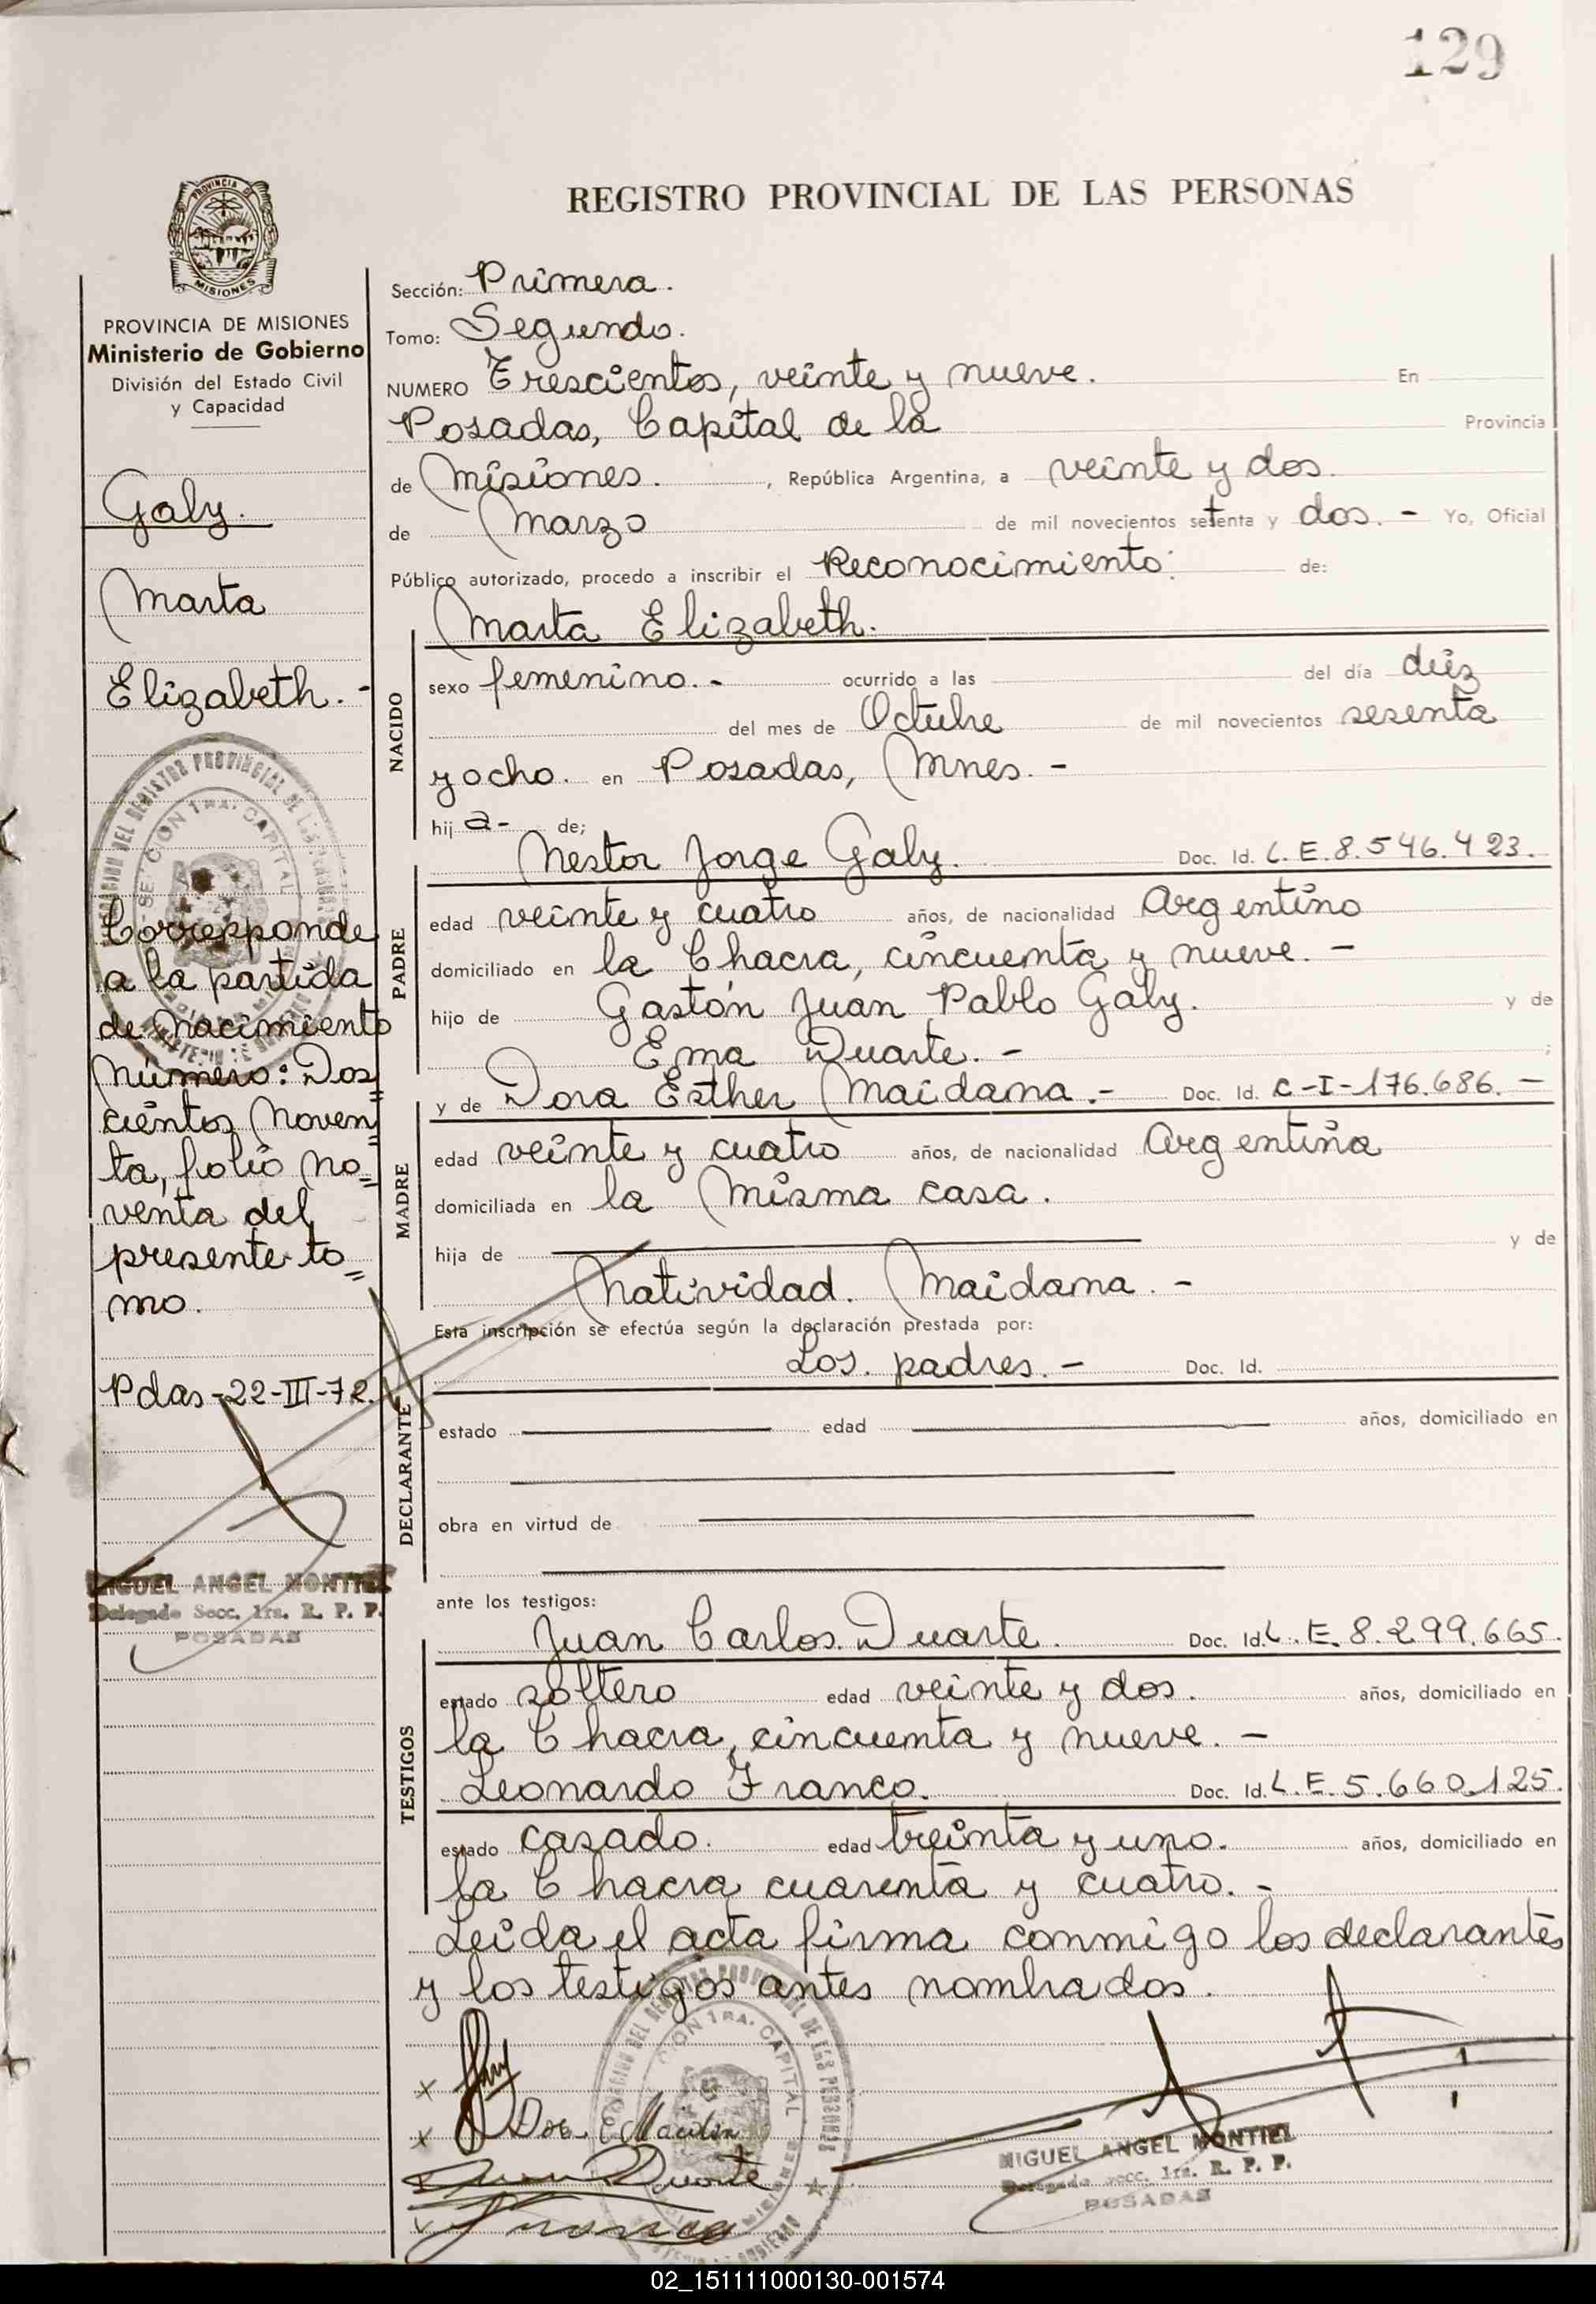 129
REGISTRO PROVINCIAL DE LAS PERSONAS
PROVINCIA DE
MISIONES
PROVINCIA DE MISIONES
Ministerio de Gobierno
División del Estado Civil
y Capacidad
Galy.
Marta
Elizabeth. -
Corresponde
a la partida
de Nacimiento
Número: Dos=
cientos Noven=
ta, folio No=
venta del
presente to=
mo.
Pdas-22-III-72.
MIGUEL ANGEL MONTIEL
Delegado Secc. 1ra. R. P. P.
POSADAS
Sección: Primera.
Tomo: Segundo.
NUMERO Trescientos, veinte y nueve. En
Posadas, Capital de la Provincia
de Misiones. , República Argentina, a veinte y dos.
de Marzo de mil novecientos setenta y dos. - Yo, Oficial
Público autorizado, procedo a inscribir el Reconocimiento: de:
NACIDO
Marta Elizabeth.
sexo femenino. - ocurrido a las del día diéz
del mes de Octubre de mil novecientos sesenta
y ocho. en Posadas, Mnes. -
hij a- de;
PADRE
Nestor Jorge Galy. Doc. Id. L.E.8.546.423.
edad veinte y cuatro años, de nacionalidad Argentino
domiciliado en la Chacra, cincuenta y nueve. -
hijo de Gastón Juan Pablo Galy. y de
Ema Duarte. - ;
MADRE
y de Dora Esther Maidana. - Doc. Id. C-I-176.686. -
edad veinte y cuatro años, de nacionalidad Argentina
domiciliada en la Misma casa.
hija de y de
Natividad. Maidana. -
Esta inscripción se efectúa según la declaración prestada por:
DECLARANTE
Los. padres. - Doc. Id.
estado edad años, domiciliado en
obra en virtud de
ante los testigos:
TESTIGOS
Juan Carlos Duarte. Doc. Id. L.E. 8.299.665.
estado soltero edad veinte y dos. años, domiciliado en
la Chacra, cincuenta y nueve. -
Leonardo Franco. Doc. Id. L.E.5.660.125.
estado casado. edad treinta y uno. años, domiciliado en
la Chacra cuarenta y cuatro. -
Leida el acta firma conmigo los declarantes
y los testigos antes nombrados.
Duarte
MIGUEL ANGEL MONTIEL
Delegado secc. 1ra. R. P. P.
POSADAS
02_151111000130-001574